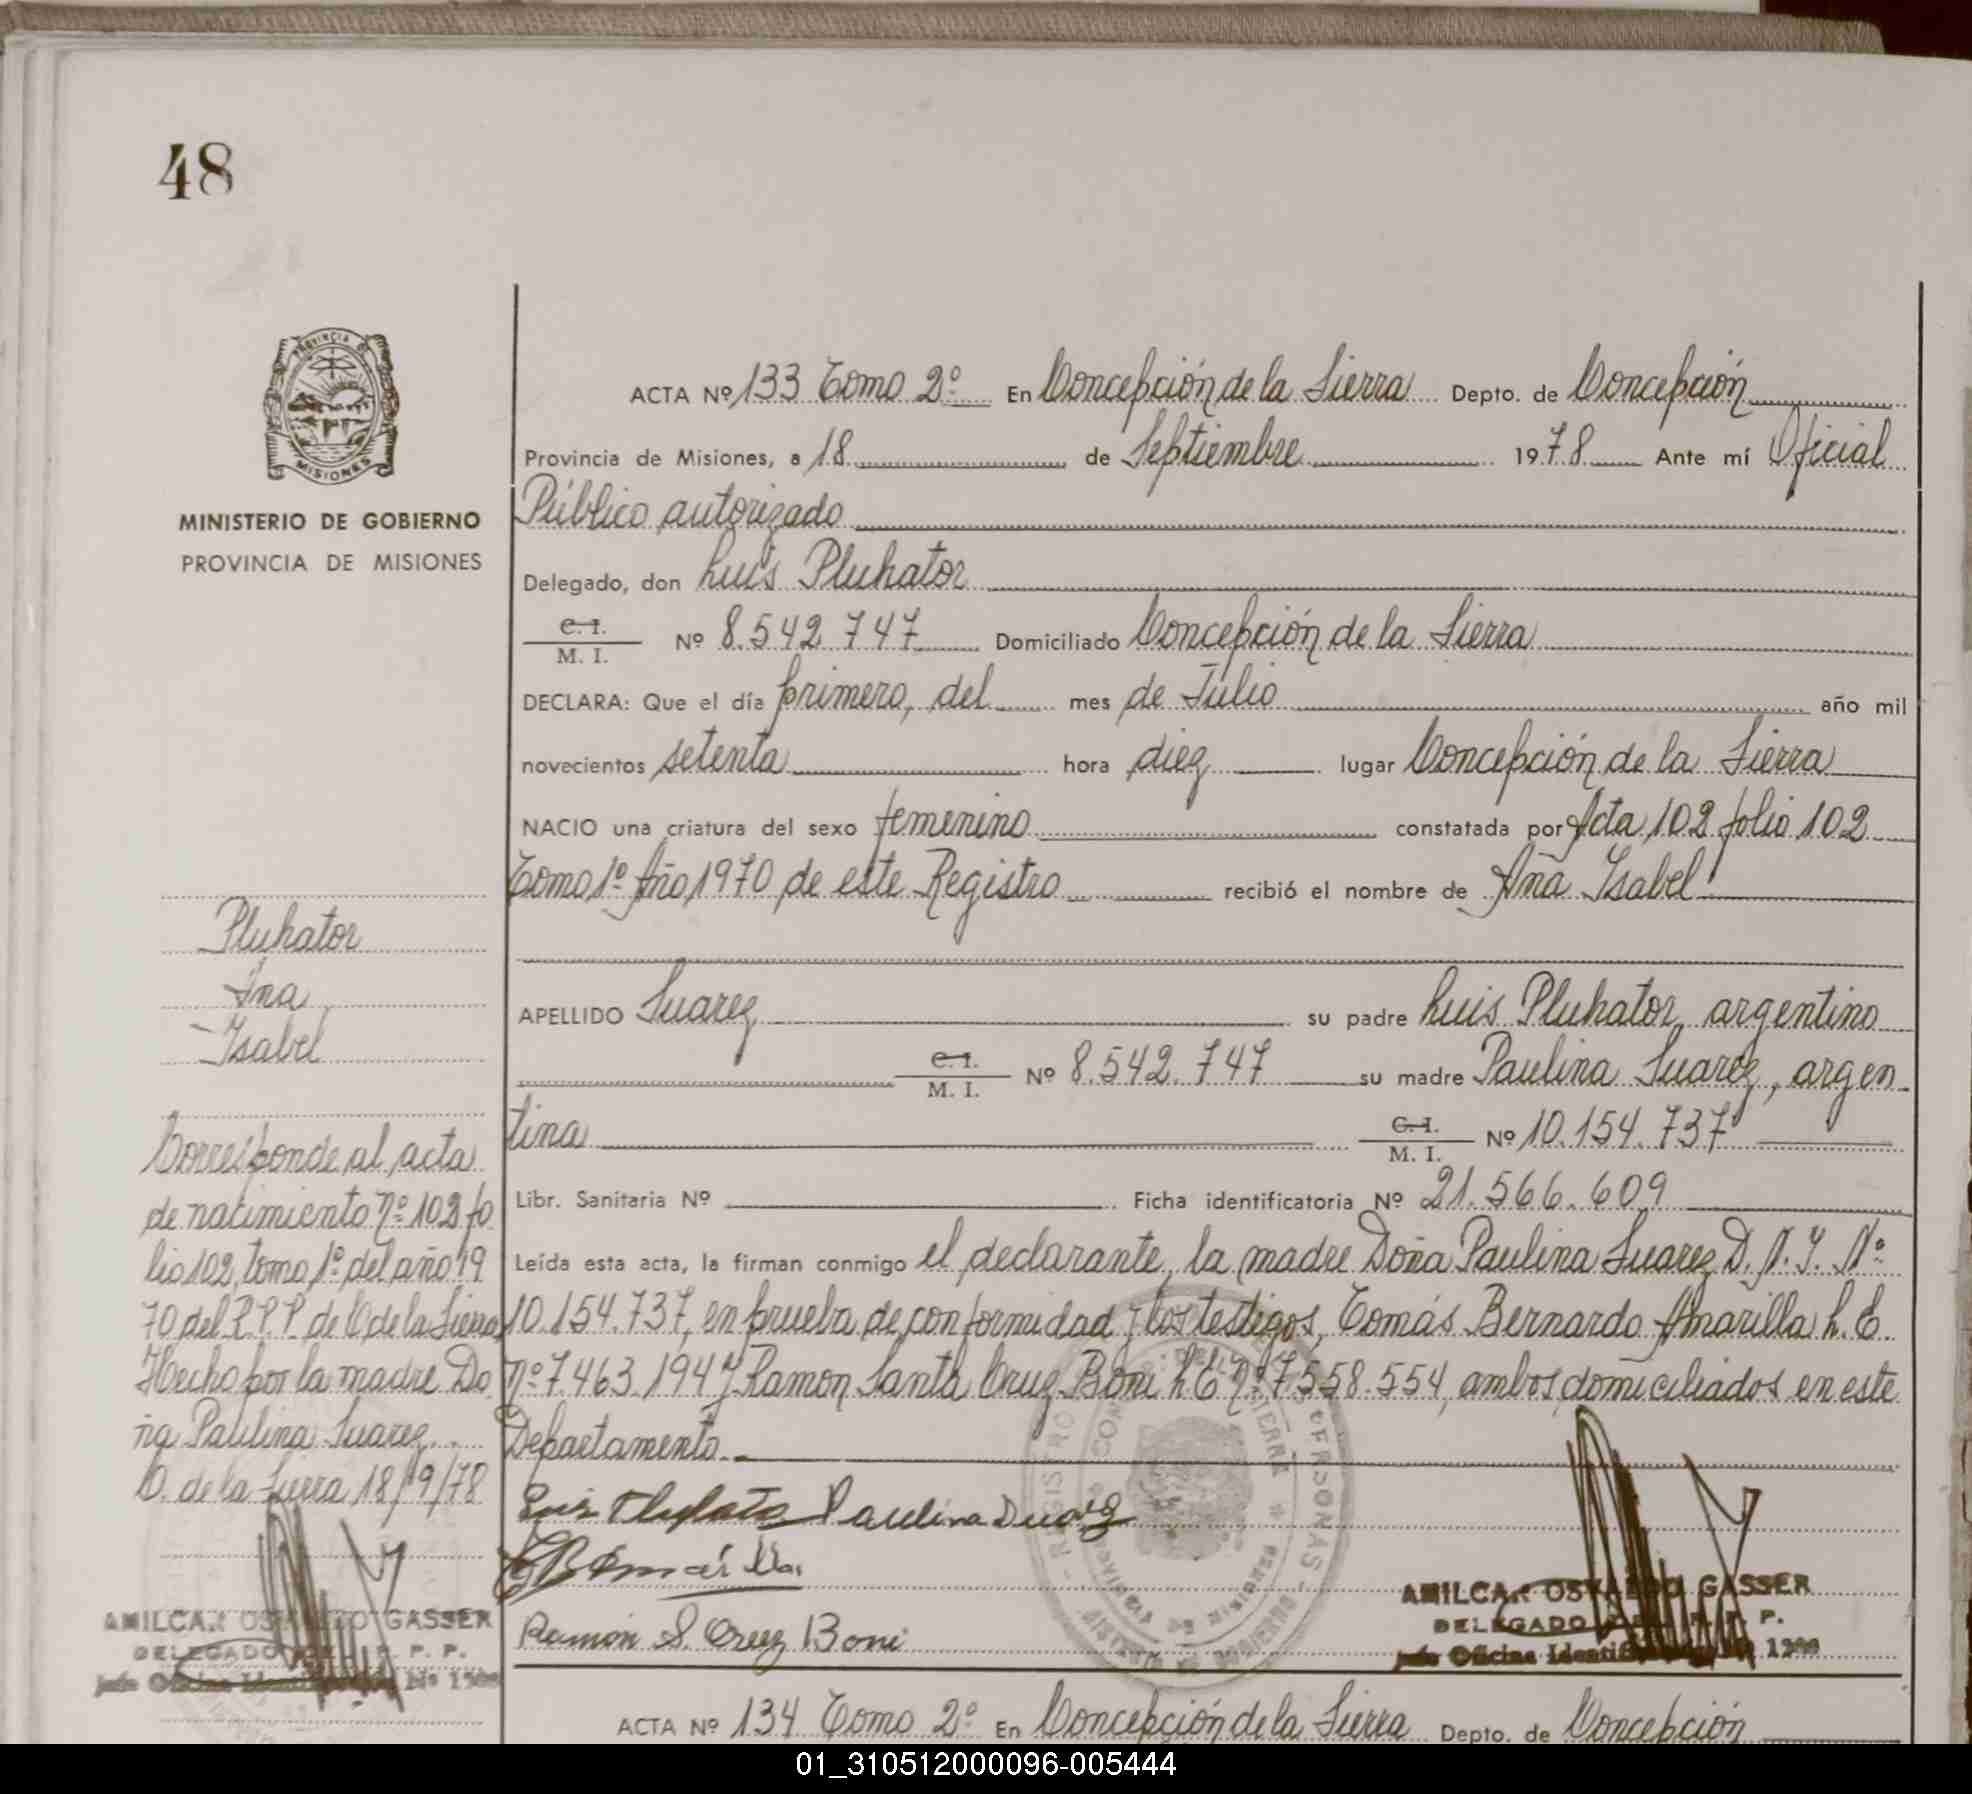 48
PROVINCIA DE
MISIONES
MINISTERIO DE GOBIERNO
PROVINCIA DE MISIONES
ACTA Nº 133 Tomo 2º En Concepción de la Sierra Depto. de Concepción
Provincia de Misiones, a 18 de Septiembre 1978 Ante mí Oficial
Público autorizado
Delegado, don Luis Pluhator
C. I.
M. I. Nº 8.542.747 Domiciliado Concepción de la Sierra
DECLARA: Que el día primero, del mes de Julio año mil
novecientos setenta hora diez lugar Concepción de la Sierra
NACIO una criatura del sexo femenino constatada por Acta 102 folio 102
Tomo 1º Año 1970 de este Registro recibió el nombre de Ana Isabel
APELLIDO Suarez su padre Luis Pluhator, argentino
C. I.
M. I. Nº 8.542.747 su madre Paulina Suarez, argen
tina C. I.
M. I. Nº 10.154.737
Libr. Sanitaria Nº Ficha identificatoria Nº 21.566.609
Leída esta acta, la firman conmigo el declarante, la madre Doña Paulina Suarez D. N. I. Nº
10.154.737, en prueba de conformidad y los testigos, Tomás Bernardo Amarilla L. E.
Nº 7.463.194 y Ramon Santa Cruz Boni L E Nº 7.558.554, ambos domiciliados en este
Departamento.
Pluhator
Ana
Isabel
Corresponde al acta
de nacimiento Nº 102 fo
lio 102, tomo 1º del año 19
70 del R.P.P. de C de la Sierra
Hecho por la madre Do
ña Paulina Suarez.
C. de la Sierra 18/9/78
AMILCAR OSVALDO GASSER
DELEGADO P. P.
Jefe Oficina
Paulina Suarez
Ramón S. Cruz Boni
AMILCAR OSVALDO GASSER
DELEGADO P. P.
Jefe Oficina
ACTA Nº 134 Tomo 2º En Concepción de la Sierra Depto. de Concepción
01_310512000096-005444